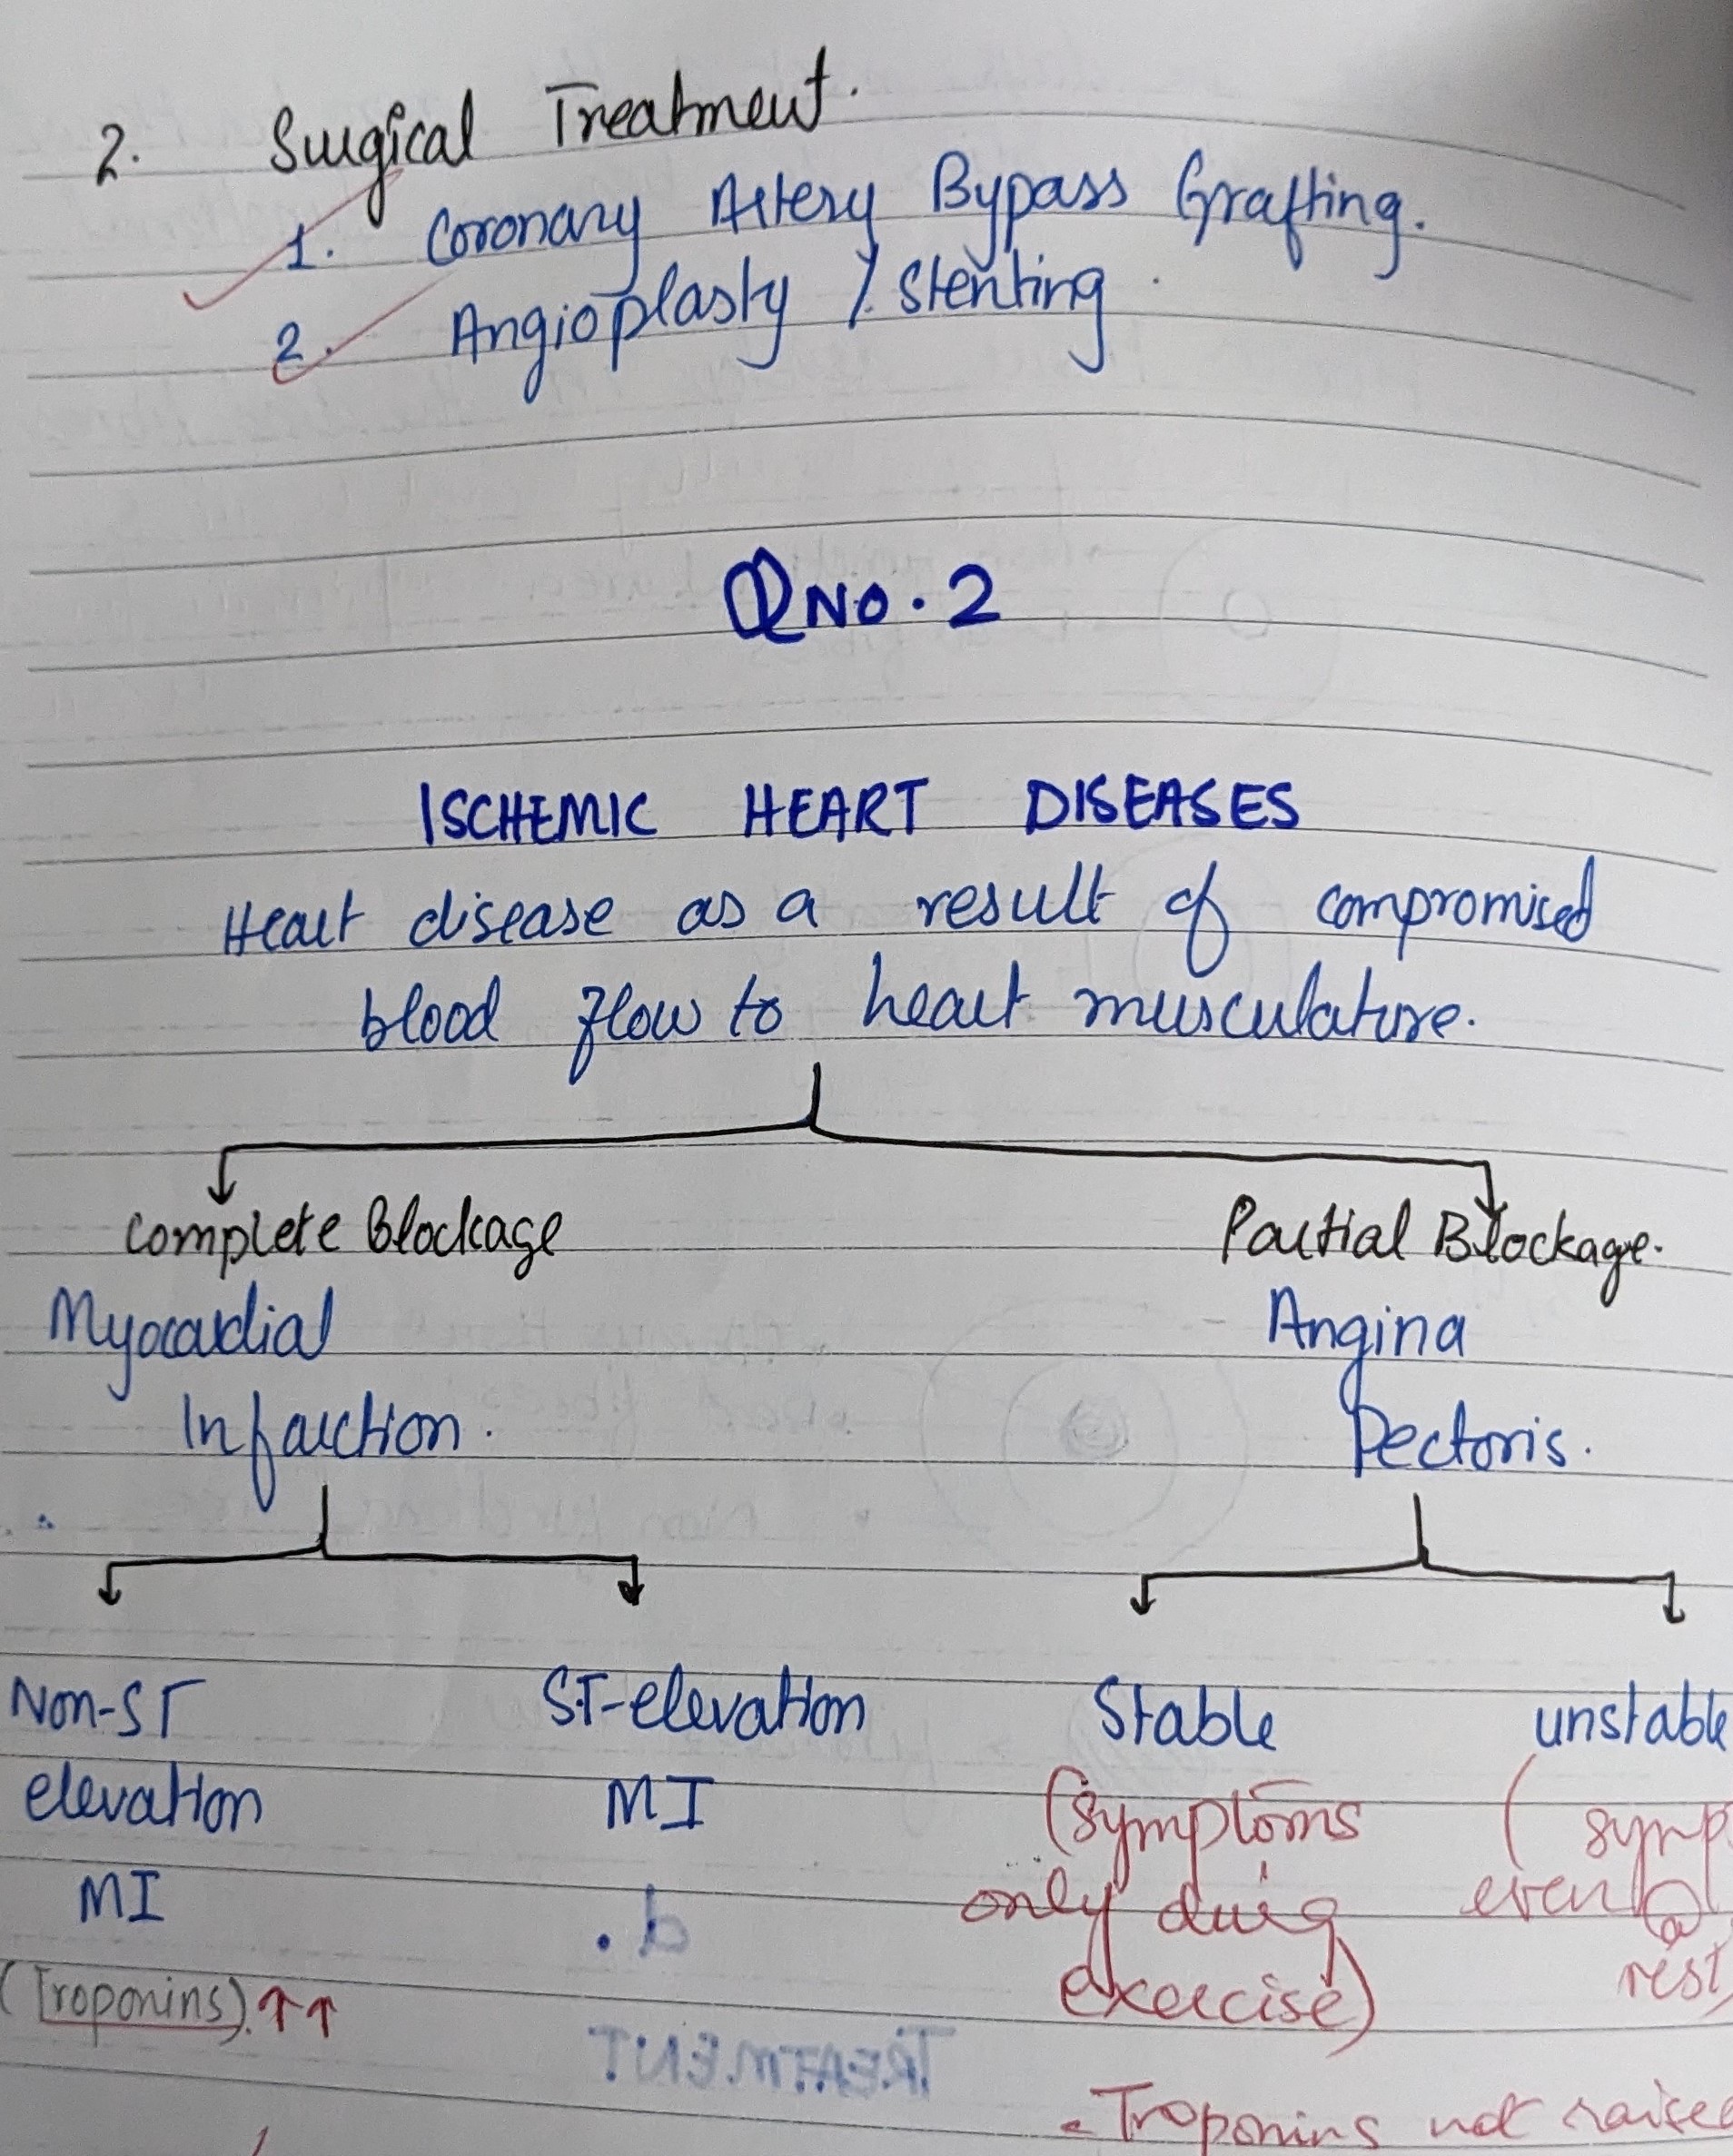 2. Surgical Treatment.
1. Coronary Artery Bypass Grafting.
2. Angioplasty / Stenting
QNO.2
ISCHEMIC HEART DISEASES
Heart disease as a result of compromised
blood flow to heart musculature.
Complete Blockage
Myocardial
Infarction.
Partial Blockage.
Angina
Pectoris.
Non-ST
elevation
MI
(Troponins).↑↑
ST-elevation
MI
Stable
(symptoms
only during
exercise)
unstable
(symp
even @
rest)
- Troponins not raised